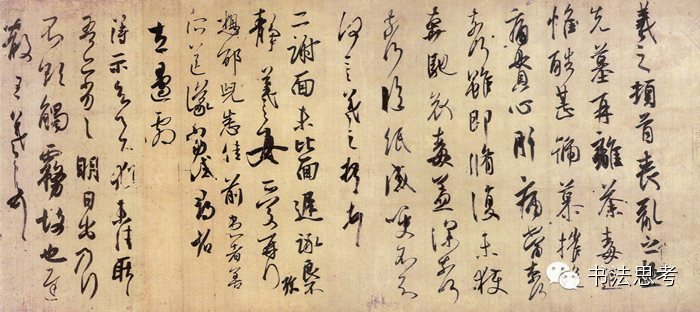 羲之頓首喪亂之極
先墓再離荼毒追
惟酷甚號慕摧絕
痛貫心肝痛當奈何
奈何雖即脩復未獲
奔馳哀毒益深奈何
奈何臨紙感哽不知
何言羲之頓首頓首
二謝面未比面遲詠良不
靜羲之女愛再拜
想邵兒悉佳前患者善
所送議當試尋省
左邊劇
得示知足下猶未佳耿
吾亦劣劣明日出乃行
不欲觸霧故也遲
散王羲之頓首
书法思考